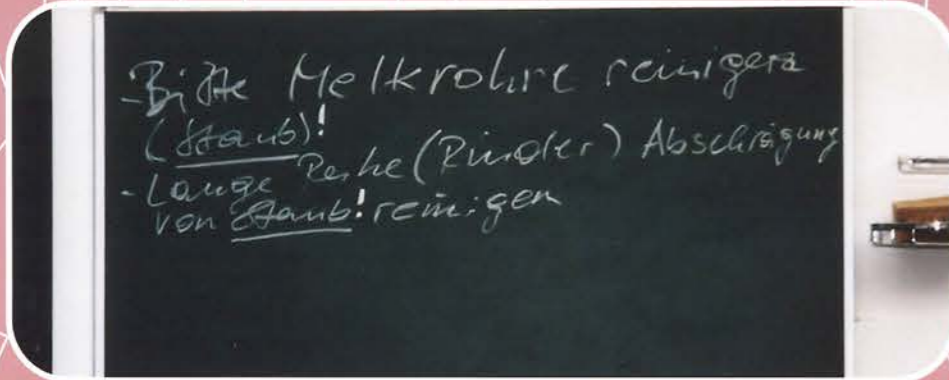 - Bitte Melkrohre reinigen
(Staub)!
- Lange Reihe (Rinder) Abschrägung
von Staub! reinigen